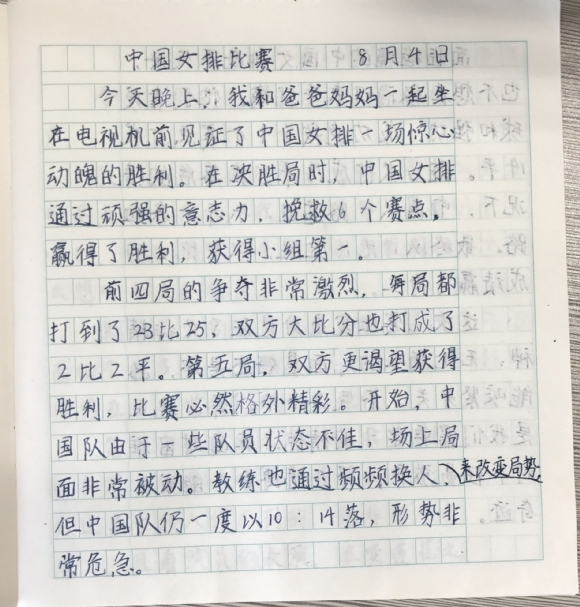 中国女排比赛 8月4日
今天晚上,我和爸爸妈妈一起坐
在电视机前见证了中国女排一场惊心
动魄的胜利。在决胜局时,中国女排
通过顽强的意志力,挽救6个赛点。
赢得了胜利,获得小组第一。
前四局的争夺非常激烈,每局都
打到了23比25,双方大比分也打成了
2比2平。第五局,双方更渴望获得
胜利,比赛必然格外精彩。开始,中
国队由于一些队员状态不佳,场上局
面非常被动。教练也通过频频换人、来改变局势,
但中国队仍一度以10:14落,形势非
常危急。